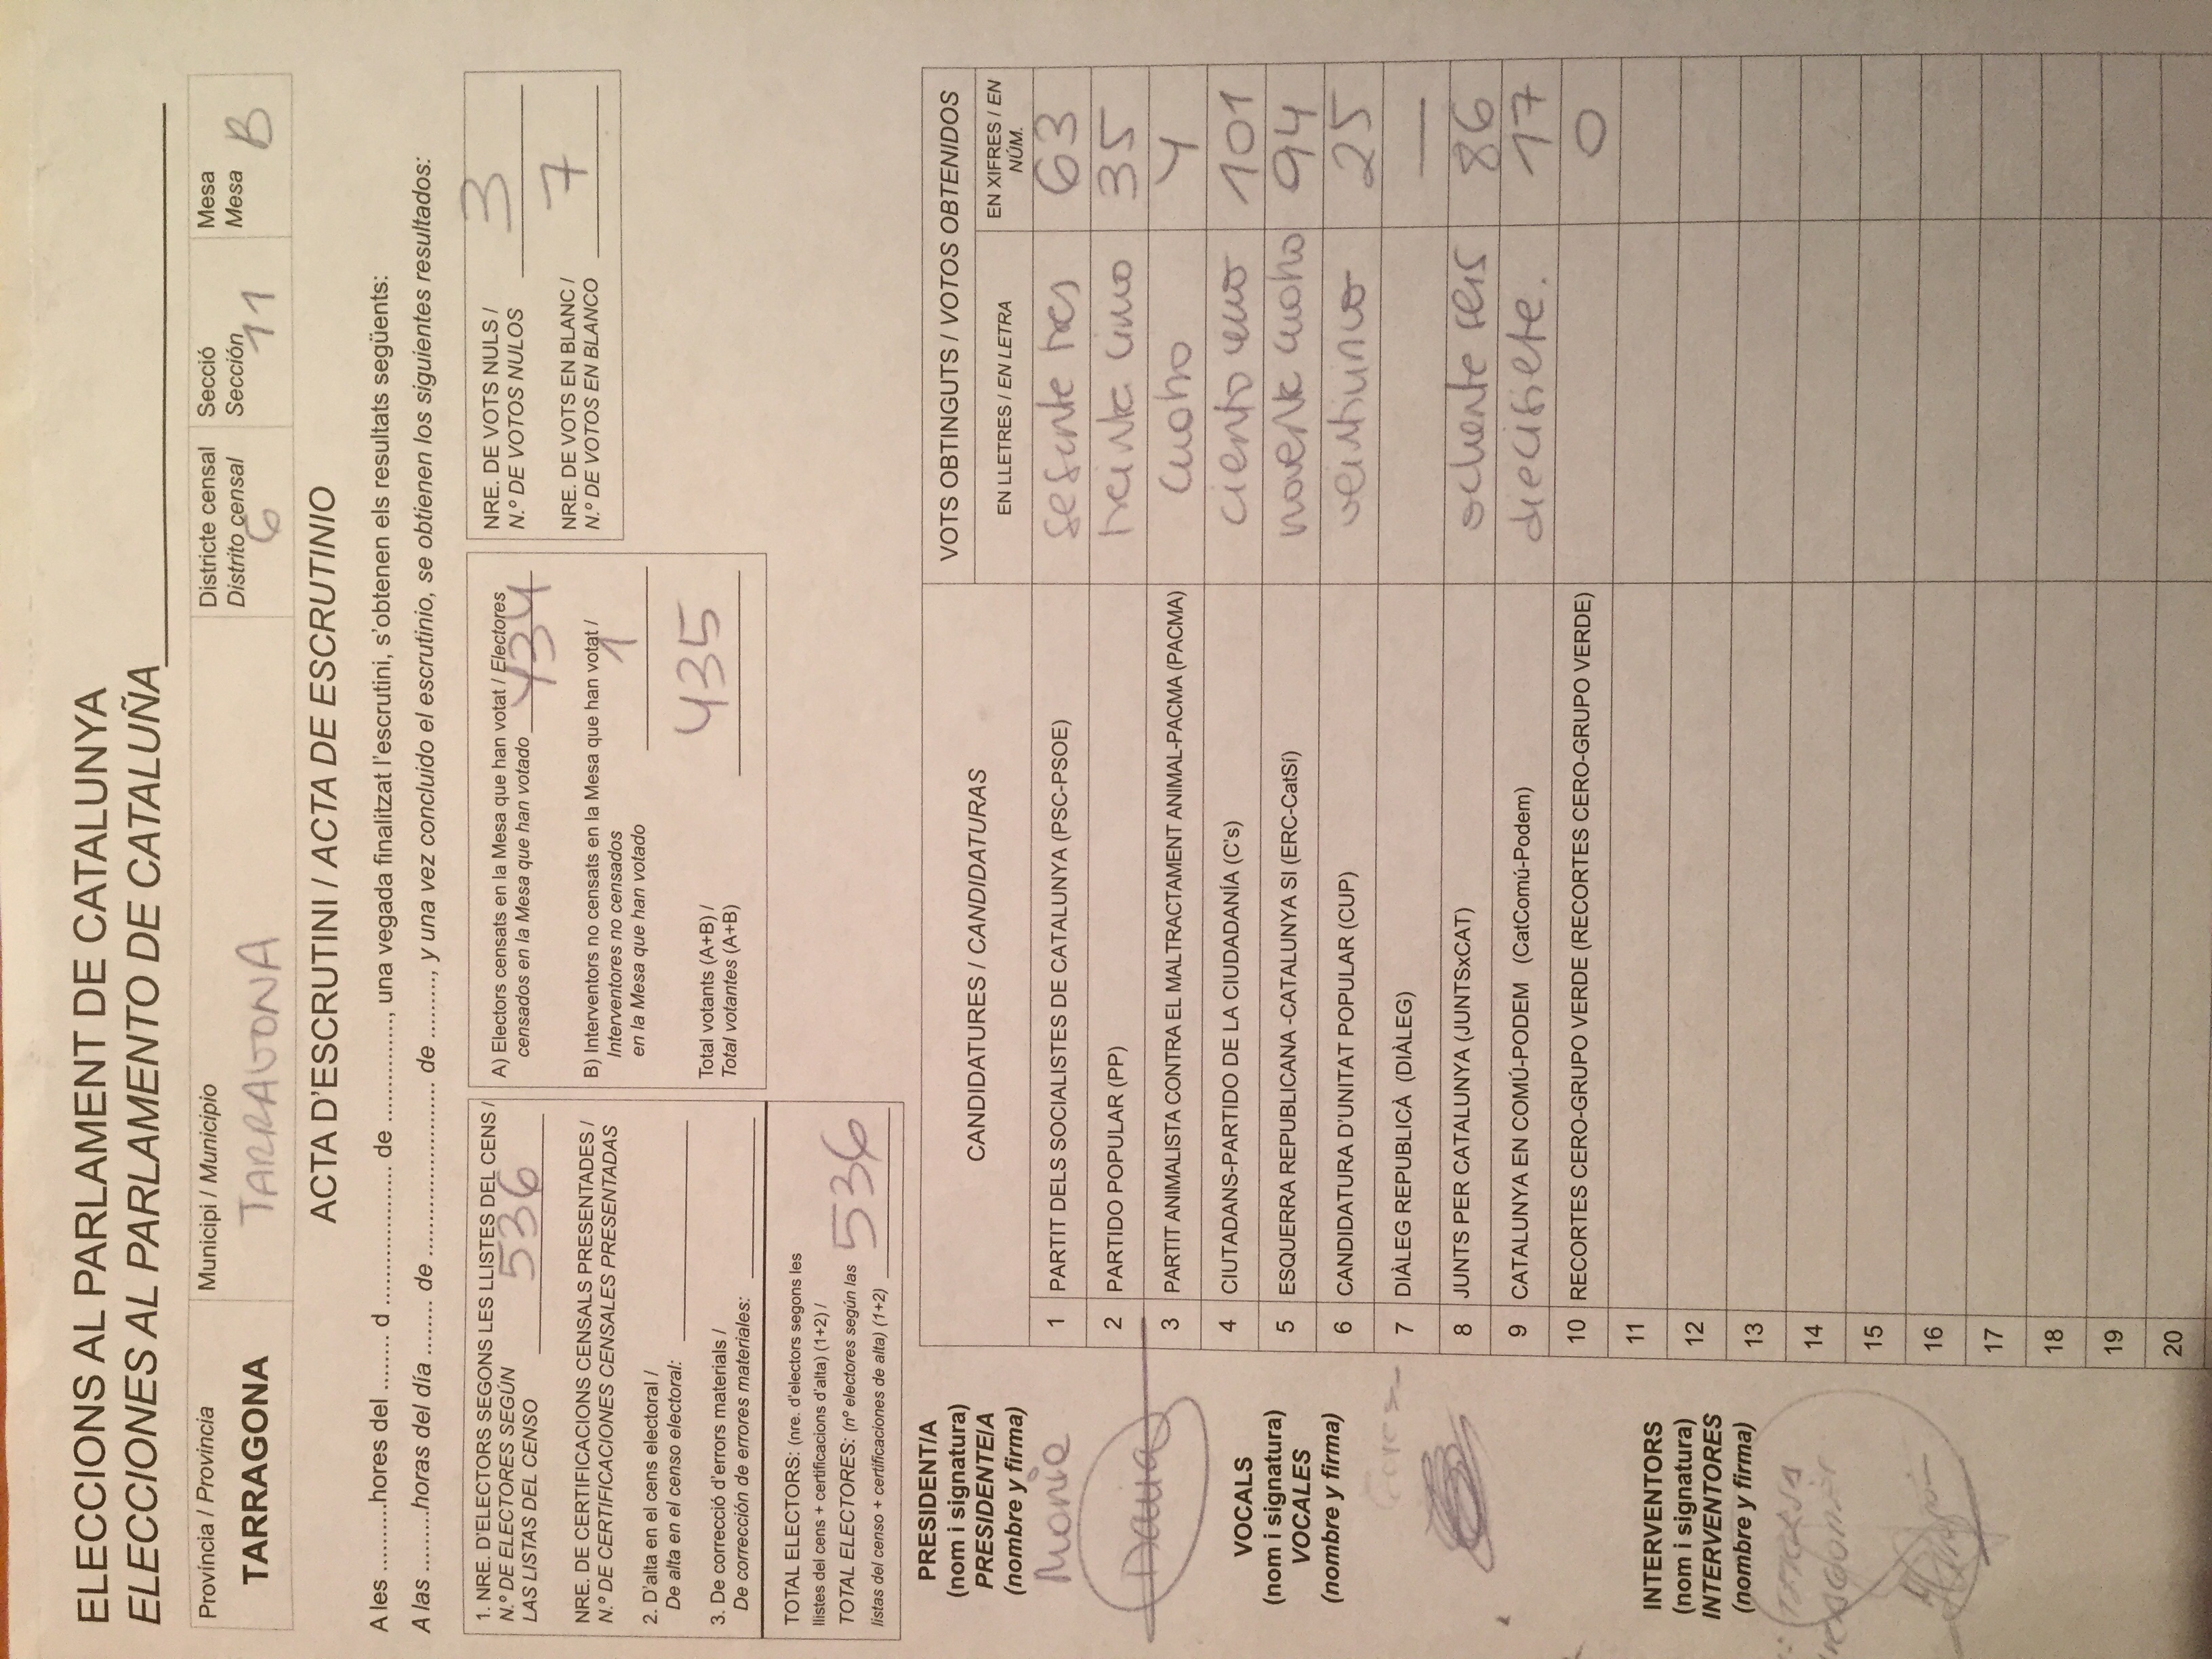 ELECCIONS AL PARLAMENT DE CATALUNYA
ELECCIONES AL PARLAMENTO DE CATALUÑA
Província / Provincia
TARRAGONA
Municipi / Municipio
TARRAGONA
Districte censal
Distrito censal
6
Secció
Sección
11
Mesa
Mesa
B
ACTA D'ESCRUTINI / ACTA DE ESCRUTINIO
A les ..........hores del ........ d .................... de ..............., una vegada finalitzat l'escrutini, s'obtenen els resultats següents:
A las .........horas del día ........ de ......................... de ........., y una vez concluido el escrutinio, se obtienen los siguientes resultados:
1. NRE. D'ELECTORS SEGONS LES LLISTES DEL CENS /
N.º DE ELECTORES SEGÚN
LAS LISTAS DEL CENSO
536
NRE. DE CERTIFICACIONS CENSALS PRESENTADES /
N.º DE CERTIFICACIONES CENSALES PRESENTADAS
2. D'alta en el cens electoral /
De alta en el censo electoral:
3. De correcció d'errors materials /
De corrección de errores materiales:
TOTAL ELECTORS: (nre. d'electors segons les
llistes del cens + certificacions d'alta) (1+2) /
TOTAL ELECTORES: (nº electores según las
listas del censo + certificaciones de alta) (1+2)
536
A) Electors censats en la Mesa que han votat / Electores
censados en la Mesa que han votado
434
B) Interventors no censats en la Mesa que han votat /
Interventores no censados
en la Mesa que han votado
1
Total votants (A+B) /
Total votantes (A+B)
435
NRE. DE VOTS NULS /
N.º DE VOTOS NULOS
3
NRE. DE VOTS EN BLANC /
N.º DE VOTOS EN BLANCO
7
PRESIDENT/A
(nom i signatura)
PRESIDENTE/A
(nombre y firma)
VOCALS
(nom i signatura)
VOCALES
(nombre y firma)
INTERVENTORS
(nom i signatura)
INTERVENTORES
(nombre y firma)
TERESA
CANDIDATURES / CANDIDATURAS
VOTS OBTINGUTS / VOTOS OBTENIDOS
EN LLETRES / EN LETRA
EN XIFRES / EN
NÚM.
1 PARTIT DELS SOCIALISTES DE CATALUNYA (PSC-PSOE) sesenta tres 63
2 PARTIDO POPULAR (PP) treinta cinco 35
3 PARTIT ANIMALISTA CONTRA EL MALTRACTAMENT ANIMAL-PACMA (PACMA) cuatro 4
4 CIUTADANS-PARTIDO DE LA CIUDADANÍA (C's) ciento uno 101
5 ESQUERRA REPUBLICANA -CATALUNYA SI (ERC-CatSí) noventa cuatro 94
6 CANDIDATURA D'UNITAT POPULAR (CUP) veinticinco 25
7 DIÀLEG REPUBLICÀ (DIÀLEG) —
8 JUNTS PER CATALUNYA (JUNTSxCAT) ochenta seis 86
9 CATALUNYA EN COMÚ-PODEM (CatComú-Podem) diecisiete. 17
10 RECORTES CERO-GRUPO VERDE (RECORTES CERO-GRUPO VERDE) 0
11
12
13
14
15
16
17
18
19
20